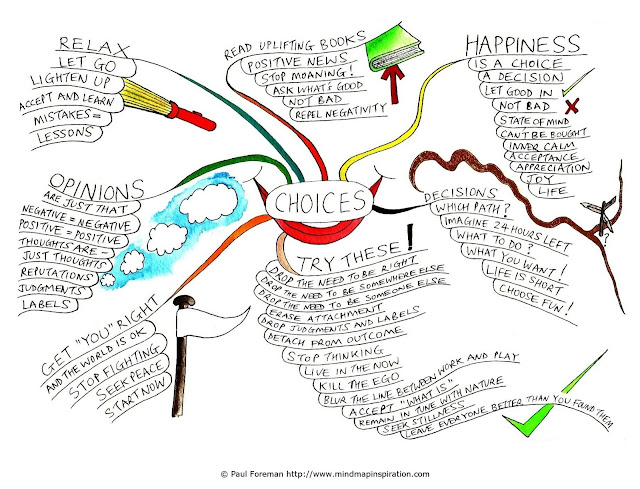 CHOICES
RELAX
LET GO
LIGHTEN UP
ACCEPT AND LEARN
MISTAKES =
LESSONS
READ UPLIFTING BOOKS
POSITIVE NEWS
STOP MOANING!
ASK WHAT'S GOOD
NOT BAD
REPEL NEGATIVITY
HAPPINESS
IS A CHOICE
A DECISION
LET GOOD IN
NOT BAD
STATE OF MIND
CAN'T BE BOUGHT
INNER CALM
ACCEPTANCE
APPRECIATION
JOY
LIFE
OPINIONS
ARE JUST THAT
NEGATIVE = NEGATIVE
POSITIVE = POSITIVE
THOUGHTS ARE
JUST THOUGHTS
REPUTATIONS
JUDGMENTS
LABELS
DECISIONS
WHICH PATH?
IMAGINE 24 HOURS LEFT
WHAT TO DO?
WHAT YOU WANT!
LIFE IS SHORT
CHOOSE FUN!
?
GET "YOU" RIGHT
AND THE WORLD IS OK
STOP FIGHTING
SEEK PEACE
START NOW
TRY THESE!
DROP THE NEED TO BE RIGHT
DROP THE NEED TO BE SOMEWHERE ELSE
DROP THE NEED TO BE SOMEONE ELSE
ERASE ATTACHMENT
DROP JUDGMENTS AND LABELS
DETACH FROM OUTCOME
STOP THINKING
LIVE IN THE NOW
KILL THE EGO
BLUR THE LINE BETWEEN WORK AND PLAY
ACCEPT "WHAT IS"
REMAIN IN TUNE WITH NATURE
SEEK STILLNESS
LEAVE EVERYONE BETTER THAN YOU FOUND THEM
© Paul Foreman http://www.mindmapinspiration.com